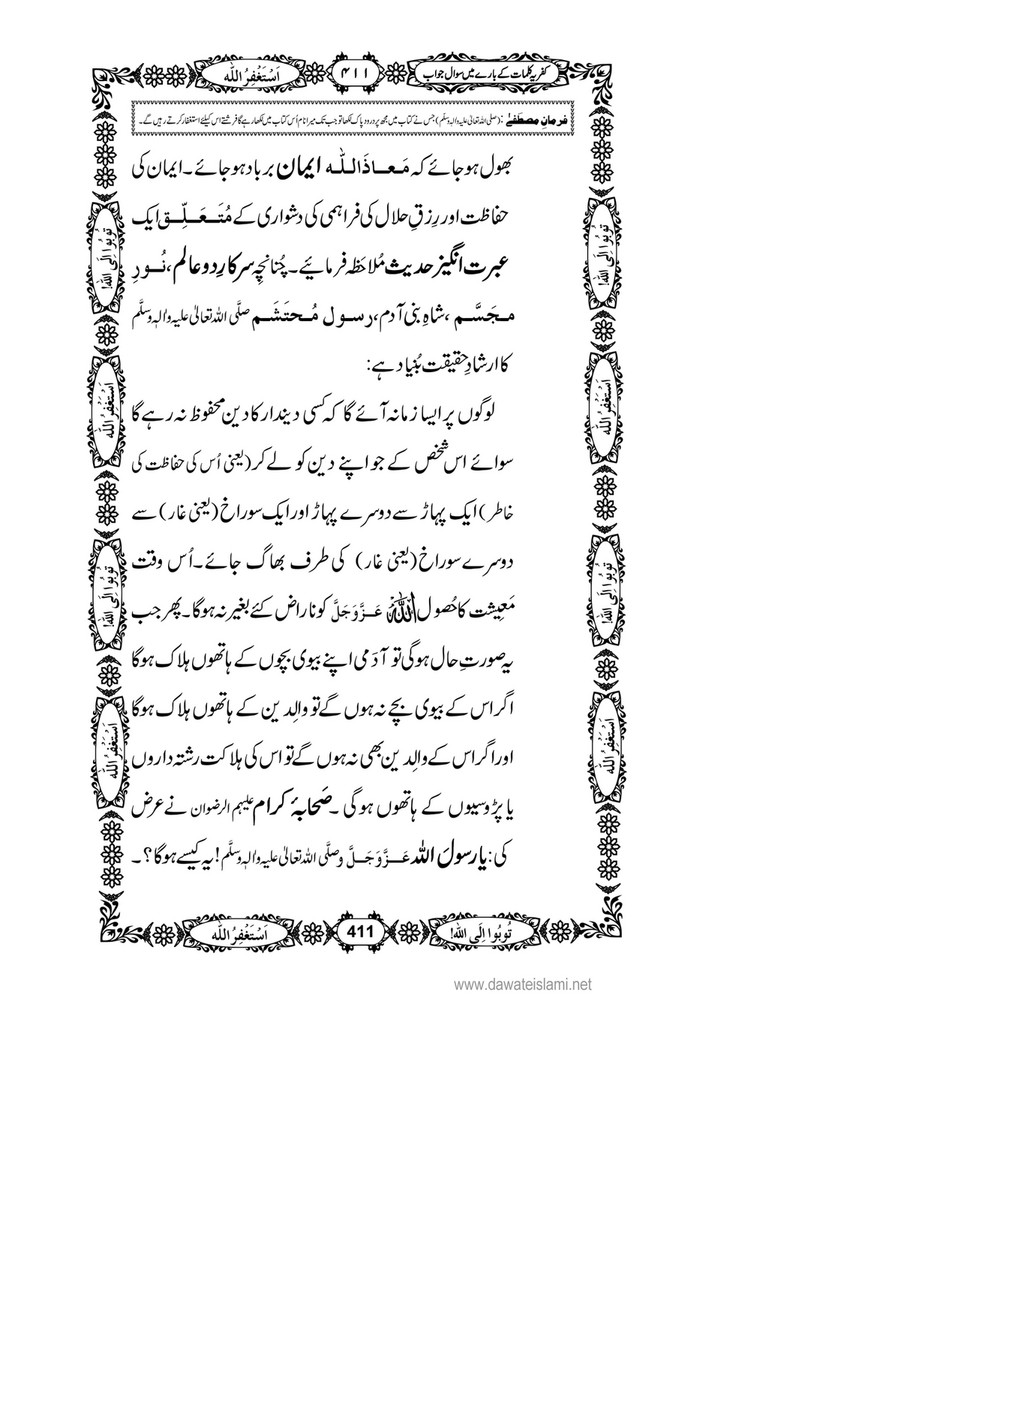 کفریہ کلمات کے بارے میں سوال جواب
۴۱۱
اَسْتَغْفِرُ اللّٰه
فرمانِ مصطَفٰے : (صلی اللہ تعالیٰ علیہ واٰلہ وسلّم) جس نے کتاب میں مجھ پر درود پاک لکھا تو جب تک میرا نام اُس کتاب میں لکھا رہے گا فرشتے اس کیلئے استغفار کرتے رہیں گے۔
بھول ہو جائے کہ مَعاذَاللّٰه ایمان برباد ہو جائے۔ ایمان کی
حفاظت اور رِزقِ حلال کی فراہمی کی دشواری کے مُتَعَلِّق ایک
عبرت انگیز حدیث مُلاحَظہ فرمائیے۔ چُنانچِہ سرکارِ دو عالم، نُورِ
مجَسَّم ، شاہِ بنی آدم، رسول مُحتَشَم صلَّی اللہ تعالیٰ علیہ واٰلہٖ وسلَّم
کا ارشادِ حقیقت بُنیاد ہے:
لوگوں پر ایسا زمانہ آئے گا کہ کسی دیندار کا دین محفوظ نہ رہے گا
سوائے اس شخص کے جو اپنے دین کو لے کر (یعنی اُس کی حفاظت کی
خاطر) ایک پہاڑ سے دوسرے پہاڑ اور ایک سوراخ (یعنی غار) سے
دوسرے سوراخ (یعنی غار) کی طرف بھاگ جائے۔ اُس وقت
مَعِیشت کا حُصول اللّٰه عَزَّوَجَلَّ کو ناراض کئے بغیر نہ ہوگا۔ پھر جب
یہ صورتِ حال ہوگی تو آدَمی اپنے بیوی بچوں کے ہاتھوں ہلاک ہوگا
اگر اس کے بیوی بچے نہ ہوں گے تو والِدین کے ہاتھوں ہلاک ہوگا
اور اگر اس کے والِدین بھی نہ ہوں گے تو اس کی ہلاکت رشتہ داروں
یا پڑوسیوں کے ہاتھوں ہوگی ۔ صَحابۂ کرام علیہم الرضوان نے عرض
کی: یا رسولَ اللّٰه عَزَّوَجَلَّ و صلَّی اللہ تعالیٰ علیہ واٰلہٖ وسلَّم! یہ کیسے ہوگا؟ ۔
تُوبُوا اِلَى اللّٰه!
اَسْتَغْفِرُ اللّٰه
تُوبُوا اِلَى اللّٰه!
اَسْتَغْفِرُ اللّٰه
تُوبُوا اِلَى اللّٰه!
اَسْتَغْفِرُ اللّٰه
تُوبُوا اِلَى اللّٰه!
اَسْتَغْفِرُ اللّٰه
تُوبُوا اِلَى اللّٰه!
411
اَسْتَغْفِرُ اللّٰه
www.dawateislami.net